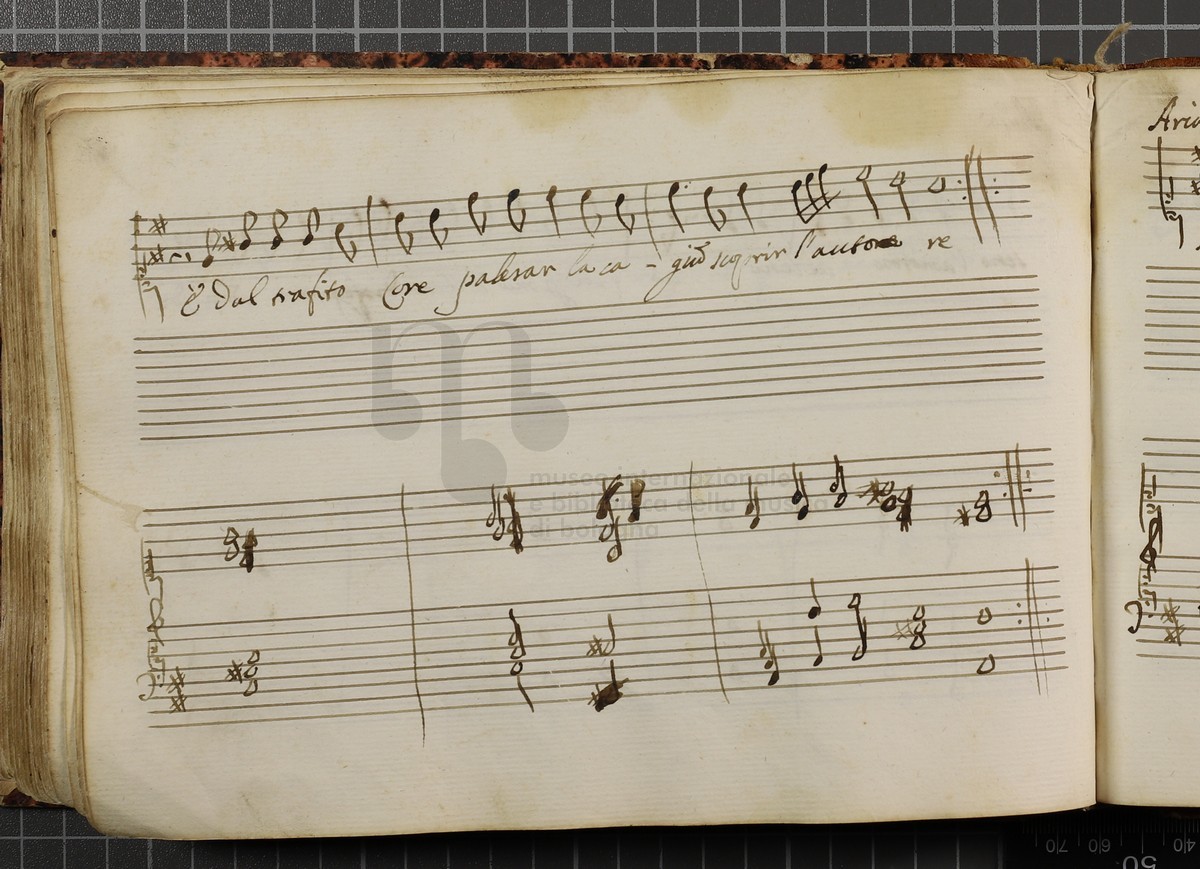 Aria
È dal trafito Core palesar la ca - giõ scoprir l'autore re
museo internazionale
e biblioteca della musica
di bologna
70 60 50 40